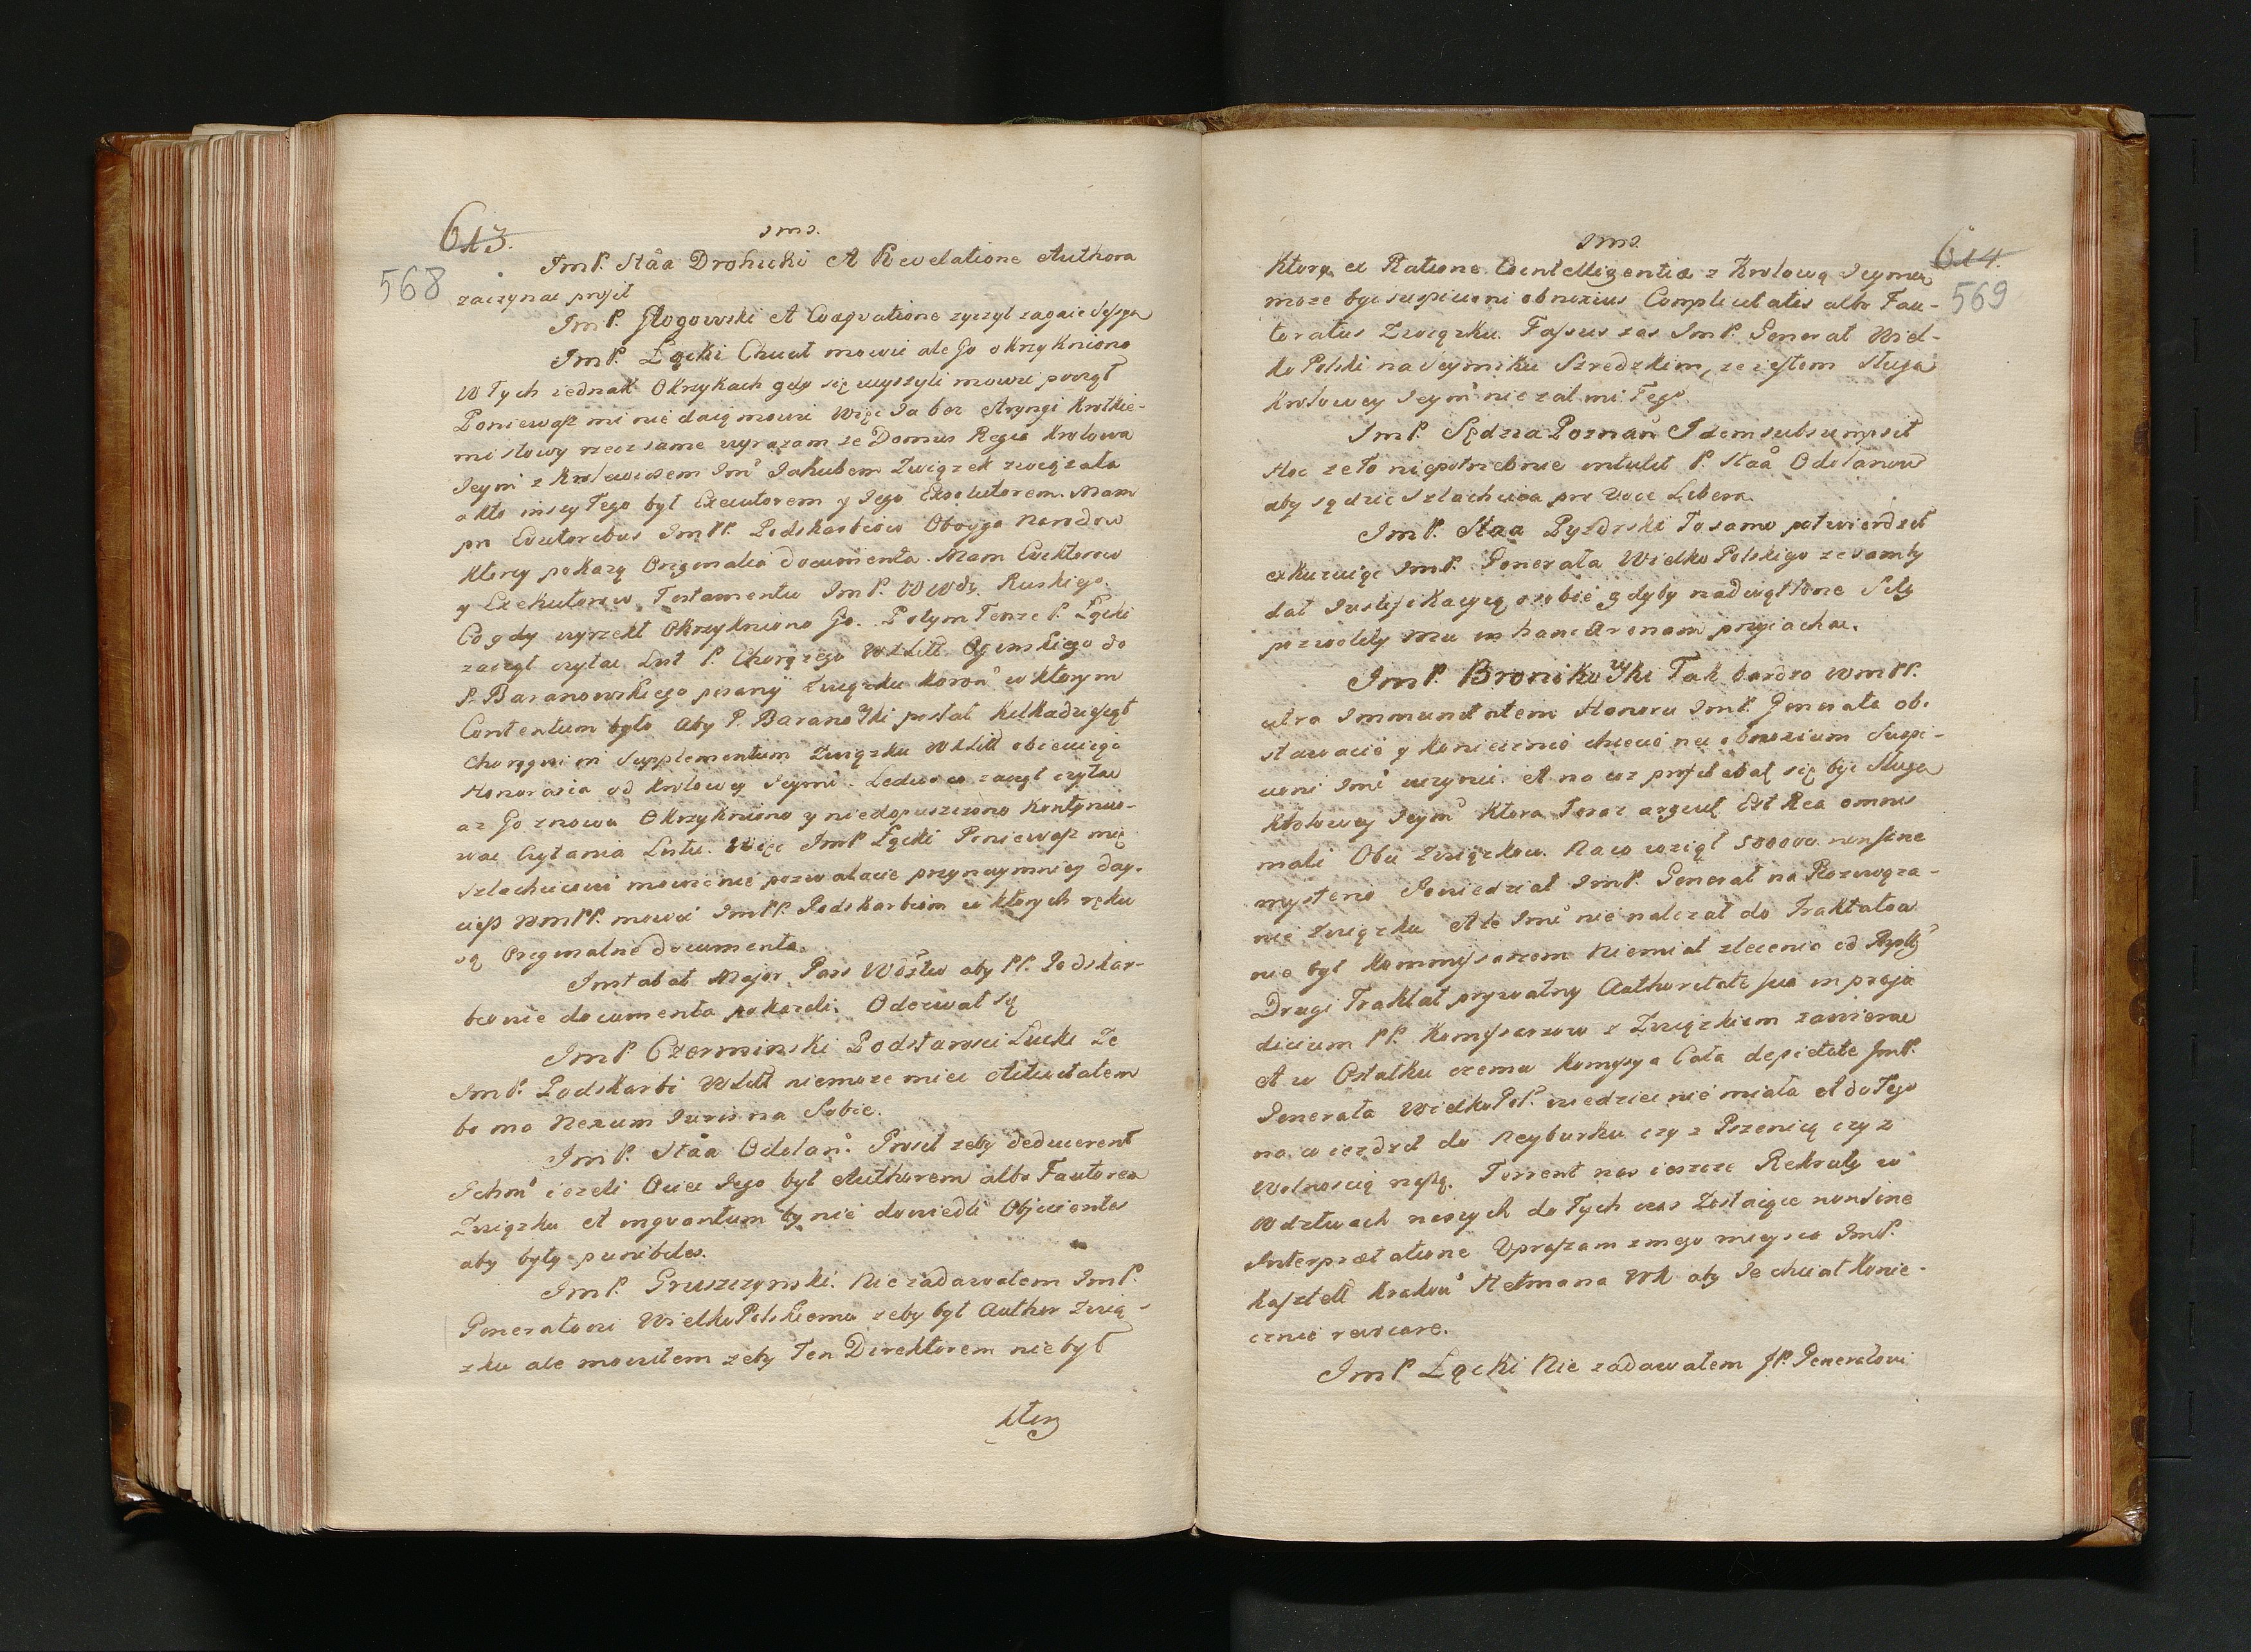 613.
568
ImP. Stãa Drohicki A Revelatione Authora
zaczynac prosił
ImP. Głogowski A Coaequatione zyczył zagaic Sessya
ImP. Łącki Chciał mowic ale Go okrzykniono
W Tych iednak Okrzykach gdy się uciszyli mowic począł
Poniewasz mi nie daią mowic Więc Ja bez Aryngi krotkie-
mi słowy rzecz same wyrazam ze Domus Regia Krolowa
Jeym z Krolewicem Im Jakubem Związek związała
a kto inszy Tego był Executorem y Jego Exolutorem. Mam
pro Evictoribus ImPP. Podskarbich Oboyga Narodow
Ktorzy pokazą Originalia documenta. Mam Evictorow
y Exekutorow Testamentu ImP. Wwdy Ruskiego.
Co gdy wyrzekł Okrzykniono Go. Potym Tenze P. Łącki
zaczął czytac List P. Chorązego WXLitt Oginskiego do
P. Baranowskiego pisany Związku Koron w ktorym
Contentum było Aby P. Baranowski posłał kilkadziesiąt
Chorągwi in Supplementum Związku WXLitt obiecuiąc
Honoraria od Krolowey Jeymi. Ledwo co zaczął czytac
az Go znowu Okrzykniono y niedopuszczono kontynuo-
wac Czytania Listu. Więc ImP Łącki Poniewasz mię
Szlachcicowi mowic nie pozwalacie przynaymniey day-
ciesz WmPP. mowic ImPP. Podskarbim w ktorych ręku
są Originalne documenta.
Instabat Major Pars Wdztw aby PP. Podskar-
biowie documenta pokazali. Odezwał się
ImP. Czerminski Podstarosci Łucki Ze
ImP. Podskarbi WXLitt niemoze miec Activitatem
bo ma Nexum Juris na Sobie.
ImP. Stãa Odolan. Prosił zeby deducerent
Ichm iezeli Ociec Jego był Authorem albo Fautorem
Związku et inquantum by nie dowiedli Objicientes
aby byli punibiles.
ImP. Gruszczynski. Nie zadawałem ImP.
Generałowi WielkoPolskiemu zeby był Author Zwią-
zku ale mowiłem zeby Ten Direktorem nie był
ktory
614.
569
Ktory ex Ratione Cointelligentiae z Krolową Jeymcią
moze byc suspicioni obnoxius Complicitatis albo Fau-
toratus Związku. Fassus zas ImP. Generał Wiel-
ko Polski na Seymiku Szredzkim, ze iestem Sługa
Krolowey Jeym nie zal mi Tego.
ImP. Sędzia Poznan Idem subsumpsit
Hoc ze to niepotrzebnie intulit P. Stãa Odolanow
aby sądzic Szlachcica pro Voce Libera.
ImP. Stãa Pyzdrski To samo potwierdził
exkuzuiąc ImP. Generała Wielko Polskiego ze sam by
dał Justifikacyą o sobie gdyby nadwątlone Siły
pozwoliły mu in hanc arenam przyiachac.
ImP. Bronikowski Tak bardzo WmPP.
circa Immunitatem Honoru ImP. Generała ob-
stawacie y koniecznie chcecie nie obnoxium Suspi-
cioni Im uczynic. A na coz profitebał się byc Sługa
Krolowey Jeym Ktora Teraz arguit Est Rea omnis
mali Obu Związkow. Na co wziął 500000 non sine
mysterio Powiedział ImP. Generał na Rozwiąza-
nie Związku Ale Im nie nalezał do Traktatow
nie był Kommissarzem Niemiał zlecenia od Rpltey
Drugi Traktat prywatny Authoritate sua in praeju
dicium PP. Komissarzow z Związkiem zawierac
A w Ostatku czemu Komissya Cała depietate ImP.
Generała WielkoPol. wiedziec nie miała A do Tego
na co iezdził do Neyburku czy z Pszenicą czy z
Wolnoscią naszą. Terrent nas ieszcze Rekruty w
Wdztwach naszych do Tych czas Zostaiące non sine
Interpraetatione Upraszam z mego mieysca ImP.
Kasztell Krakow Hetmana WK aby Je chciał konie-
cznie revocare.
ImP Łącki Nie zadawałem JP. Generałowi